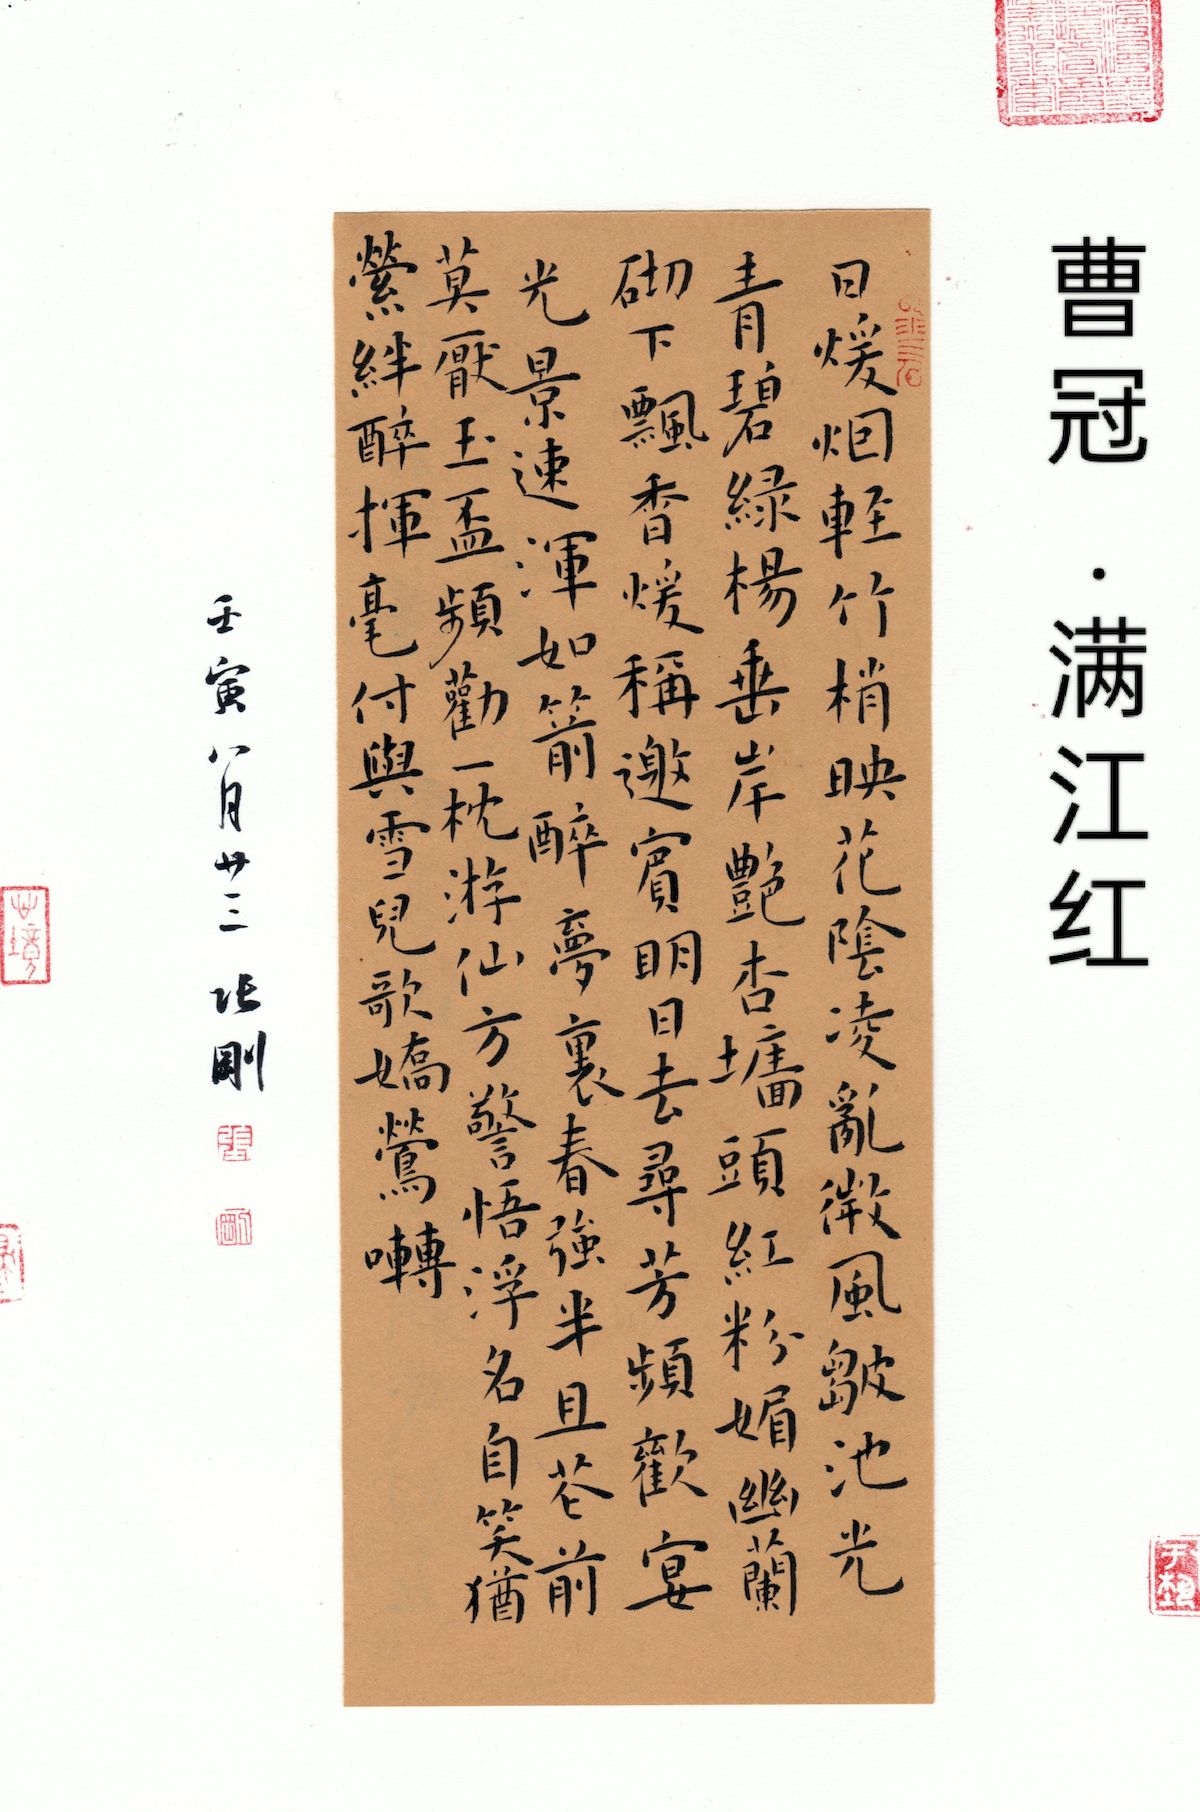 曹冠·满江红
日煖烟輕竹梢映花陰凌亂微風皺池光
青碧緑楊垂岸艷杏墻頭紅粉媚幽蘭
砌下飄香煖稱邀賓明日去尋芳頻歡宴
光景速渾如箭醉夢裏春強半且花前
莫厭玉盃頻勸一枕游仙方警悟浮名自笑猶
縈絆醉揮毫付與雪兒歌嬌鶯囀
壬寅八月廿三 张剛